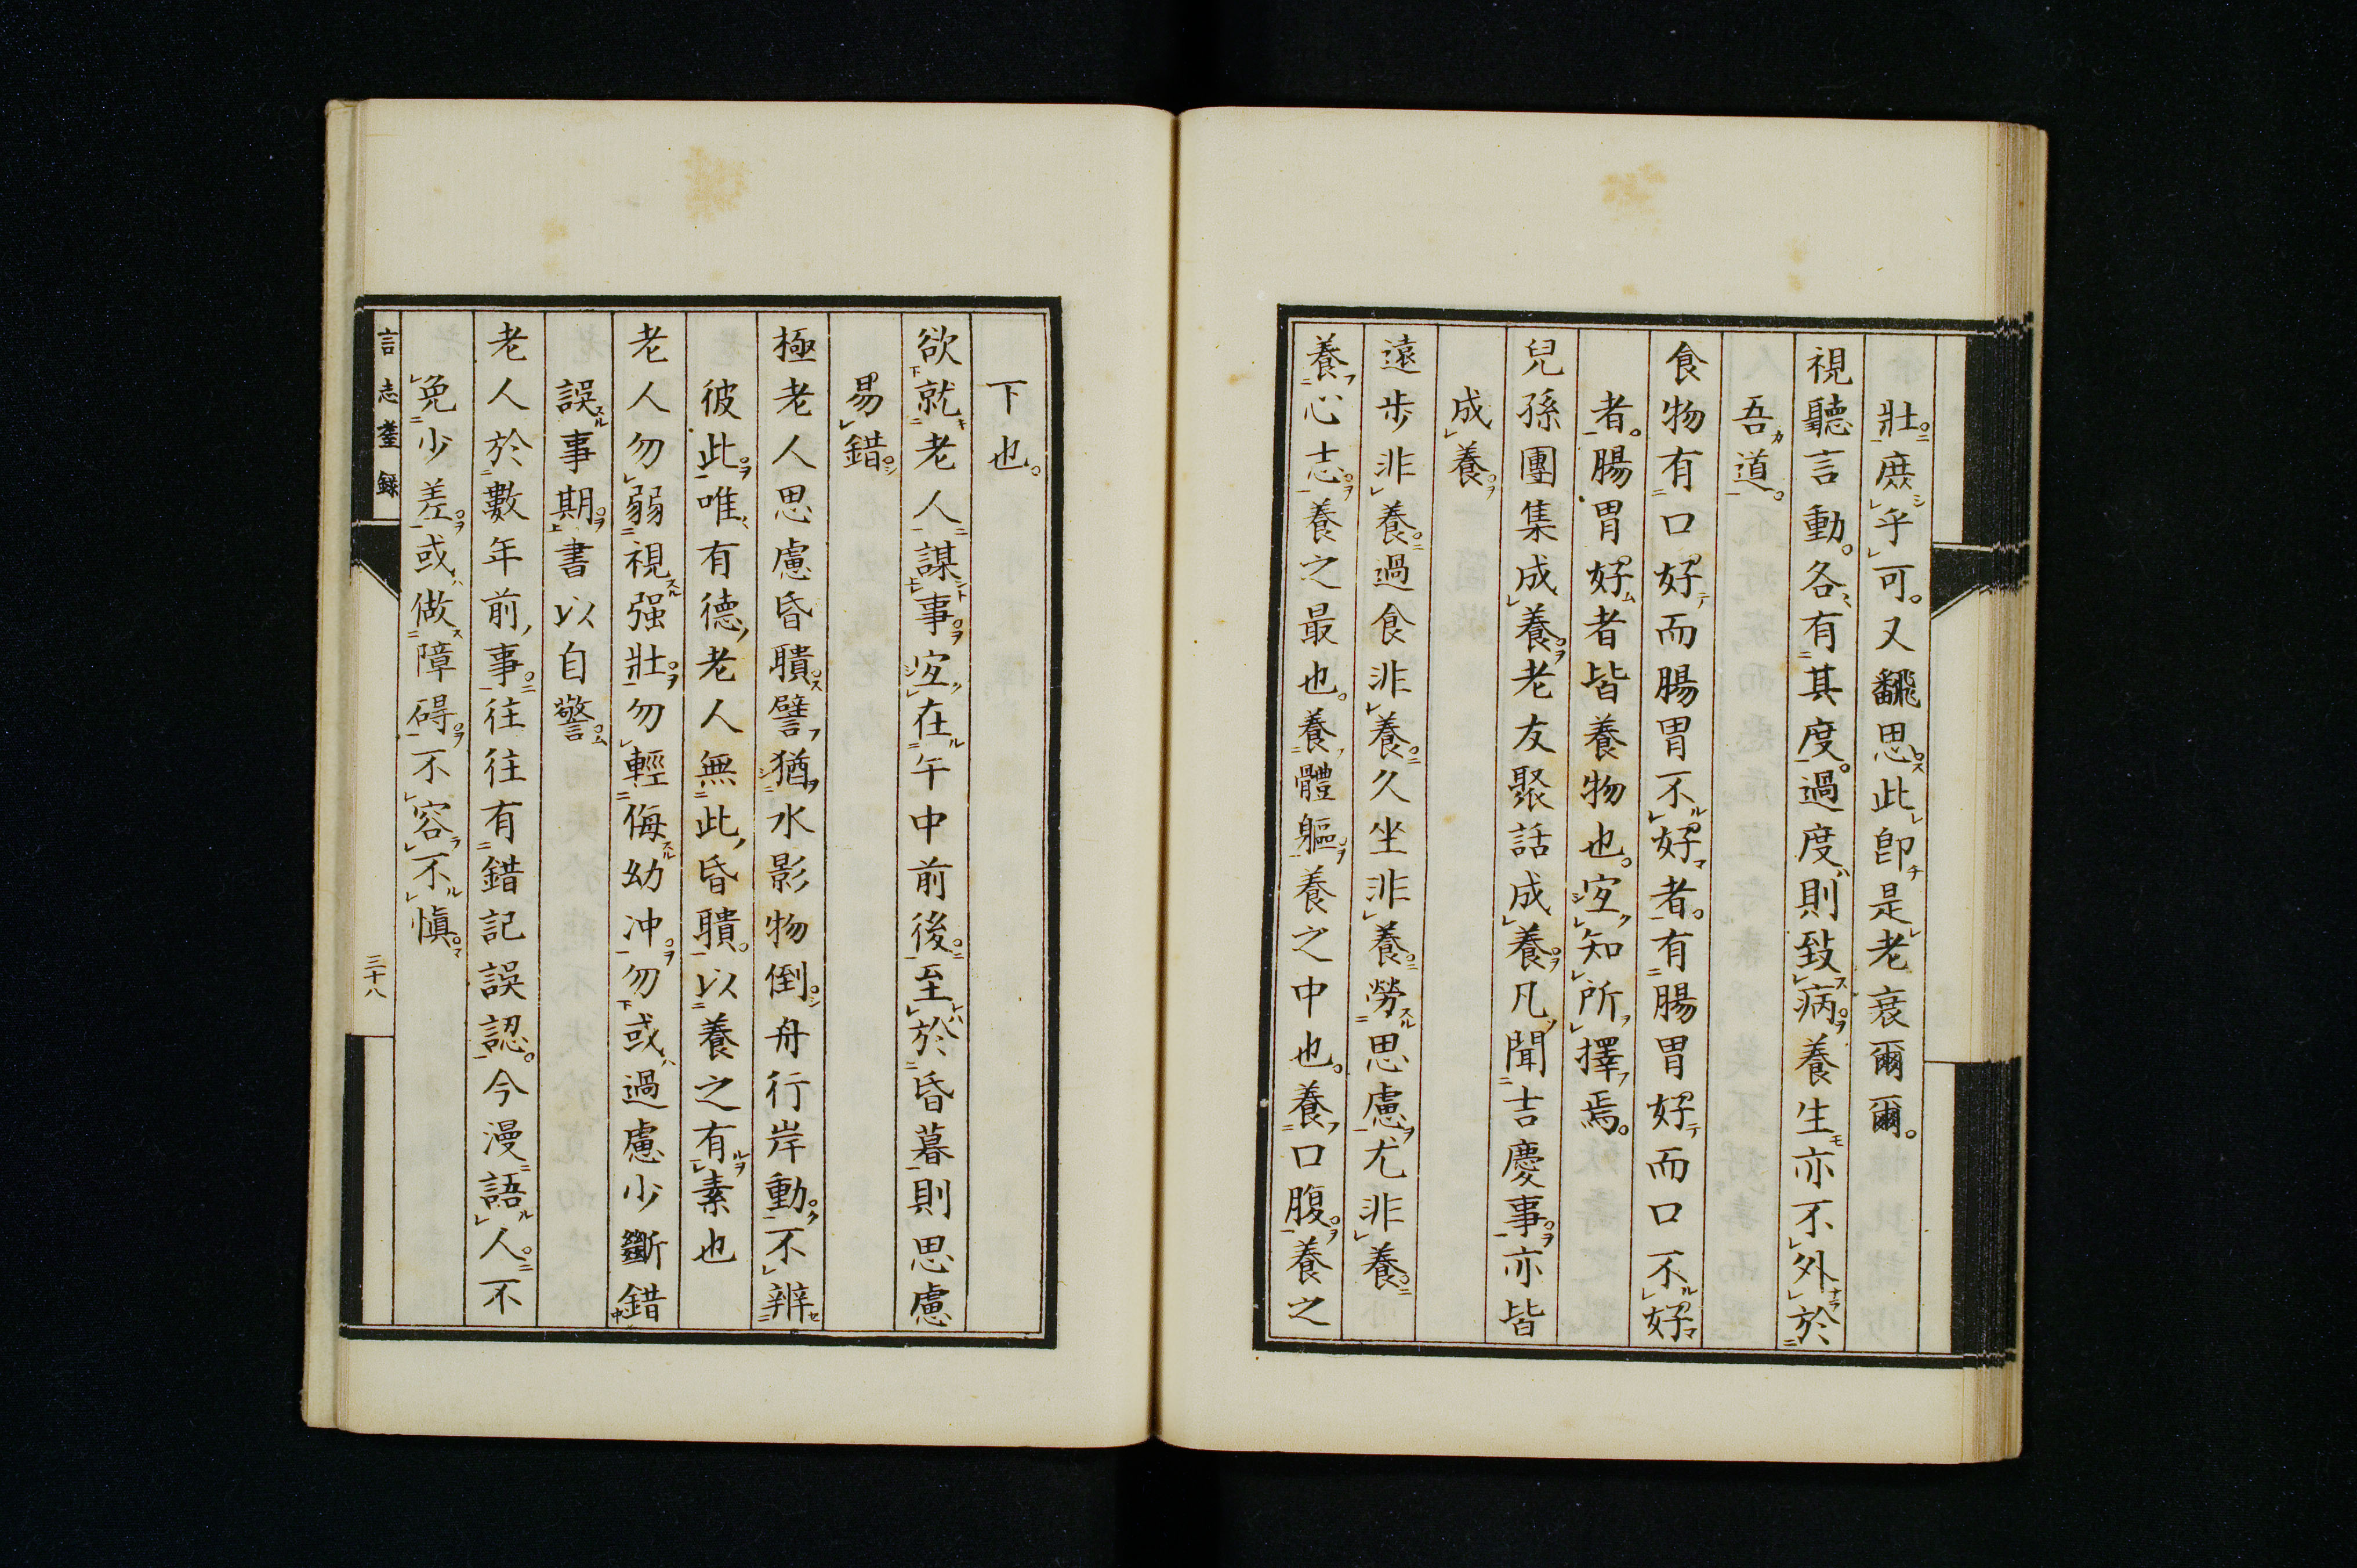 壯庶乎可又飜思此卽是老衰爾爾
視聽言動各有其度過度則致病養生亦不外於
吾道
食物有口好而腸胃不好者有腸胃好而口不好
者腸胃好者皆養物也宜知所擇焉
兒孫團集成養老友聚話成養凡聞吉慶事亦皆
成養
遠步非養過食非養久坐非養勞思慮尤非養
養心志養之最也養體軀養之中也養口腹養之
下也
欲就老人謀事宜在午中前後至於昏暮則思慮
易錯
極老人思慮昏聵譬猶水影物倒舟行岸動不辨
彼此唯有德老人無此昏聵以養之有素也
老人勿弱視强壯勿輕侮幼冲勿或過慮少斷錯
誤事期書以自警
老人於數年前事往往有錯記誤認今漫語人不
免少差或做障碍不容不愼
言志耋錄
三十八